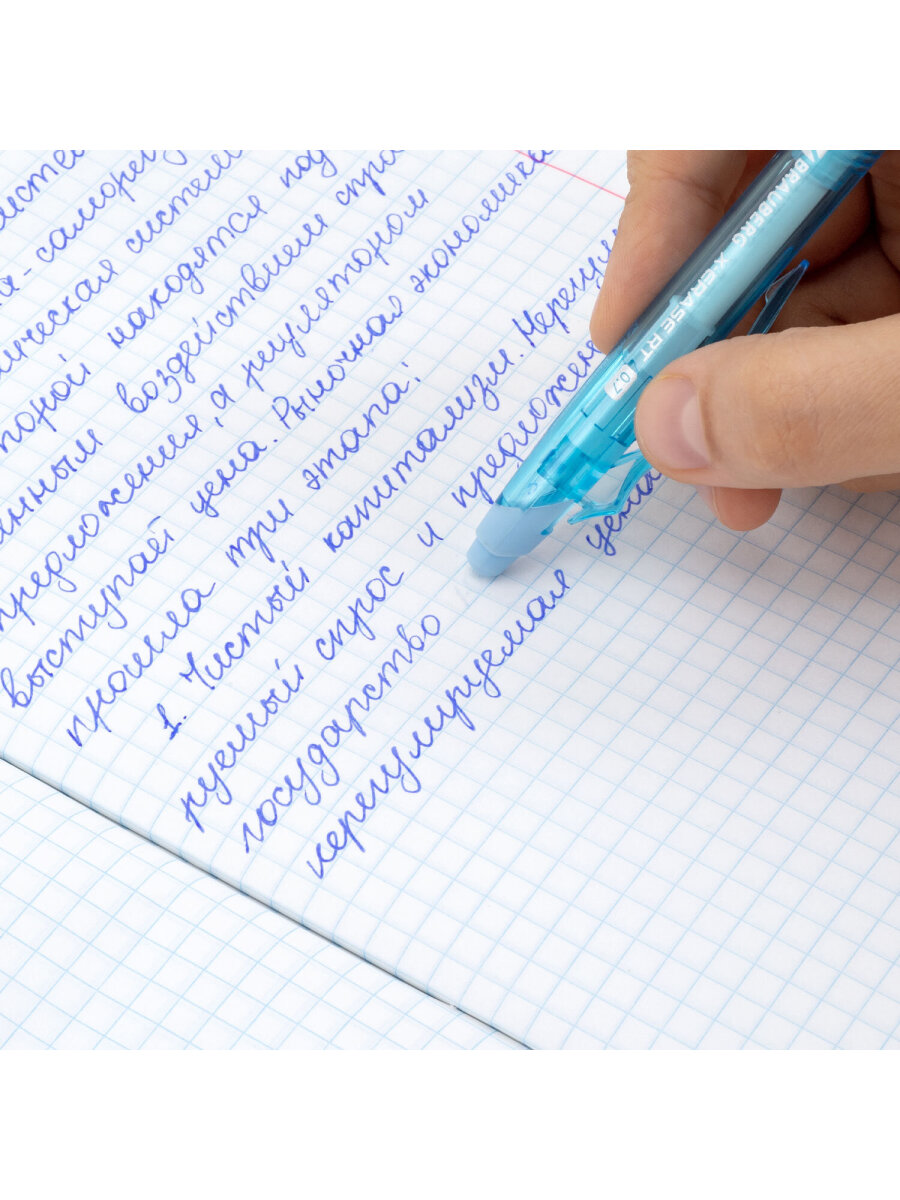 систе
-саморегу
ическая система
торой находятся под
янным воздействием спро
предложения, а регулятором
выступает цена. Рыночная экономика
прошла три этапа:
1. Чистый капитализм. Нерегули
руемый спрос и предложен
государство
нерегулируемая цены
BRAUBERG X-ERASE RT 0.7